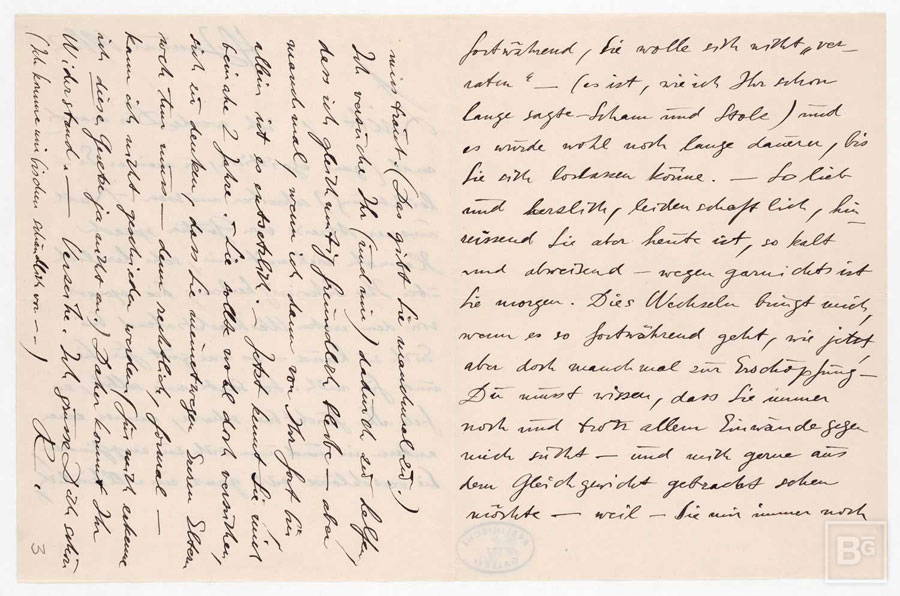 fortwährend, Sie wolle sich nicht „ver-
raten“ – (es ist, wie ich Ihr schon
lange sagte – Scham und Stolz) und
es würde wohl noch lange dauern, bis
Sie sich loslassen könne. – So lieb
und herzlich, leidenschaftlich, hin
reissend Sie aber heute ist, so kalt
und abweisend – wegen garnichts ist
Sie morgen. Dies Wechseln bringt mich,
wenn es so fortwährend geht, wie jetzt,
aber doch manchmal zur Erschöpfung –
Du musst wissen, dass Sie immer
noch und trotz allem Einwände gegen
mich sucht – und mich gerne aus
dem Gleichgewicht gebracht sehen
möchte – weil – Sie mir immer noch
misstraut. (Das gibt Sie manchmal zu.)
Ich versuche Ihr (und mir) dadurch zu helfen,
dass ich gleichmütig freundlich bleibe – aber
manchmal, wenn ich dann von Ihr fort bin
allein ist es entsetzlich. – Jetzt kennt Sie mich
beinahe 2 Jahre. Sie sollte wohl doch versuchen,
sich zu denken, dass Sie meinetwegen Eltern
noch tun muss – denn rechtlich, formal –
kann ich nicht geschieden werden (für mich erkenne
ich diese Gesetze ja nicht an.) Daher kommt Ihr
Widerstand. – Verzeihe. Ich grüsse Dich schön
R.
(Ich komme mir bischen schändlich vor –)
3
BG